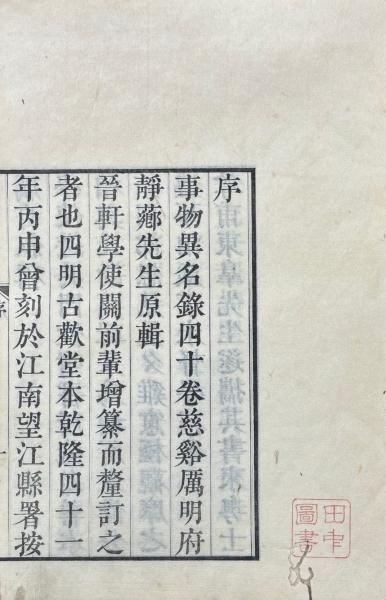 序
事物異名錄四十卷慈谿厲明府
靜薌先生原輯
晉軒學使關前輩增纂而釐訂之
者也四明古歡堂本乾隆四十一
年丙申曾刻於江南望江縣署按
序
田中
圖書